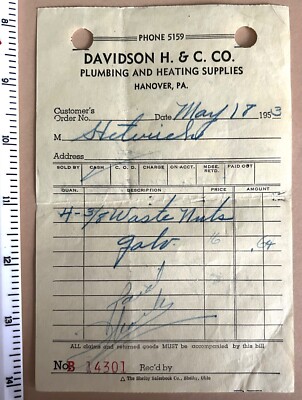 PHONE 5159
DAVIDSON H. & C. CO.
PLUMBING AND HEATING SUPPLIES
HANOVER, PA.
Customer's
Order No. Date May 18 1953
M
Address
SOLD BY CASH C. O. D. CHARGE ON ACCT. MDSE. RETD. PAID OUT
QUAN. DESCRIPTION PRICE AMOUNT
4 - 3/8 Waste Nuts
galv. 16 .64
Paid
ALL claims and returned goods MUST be accompanied by this bill
No. B 14301 Rec'd by
The Shelby Salesbook Co., Shelby, Ohio
13
14